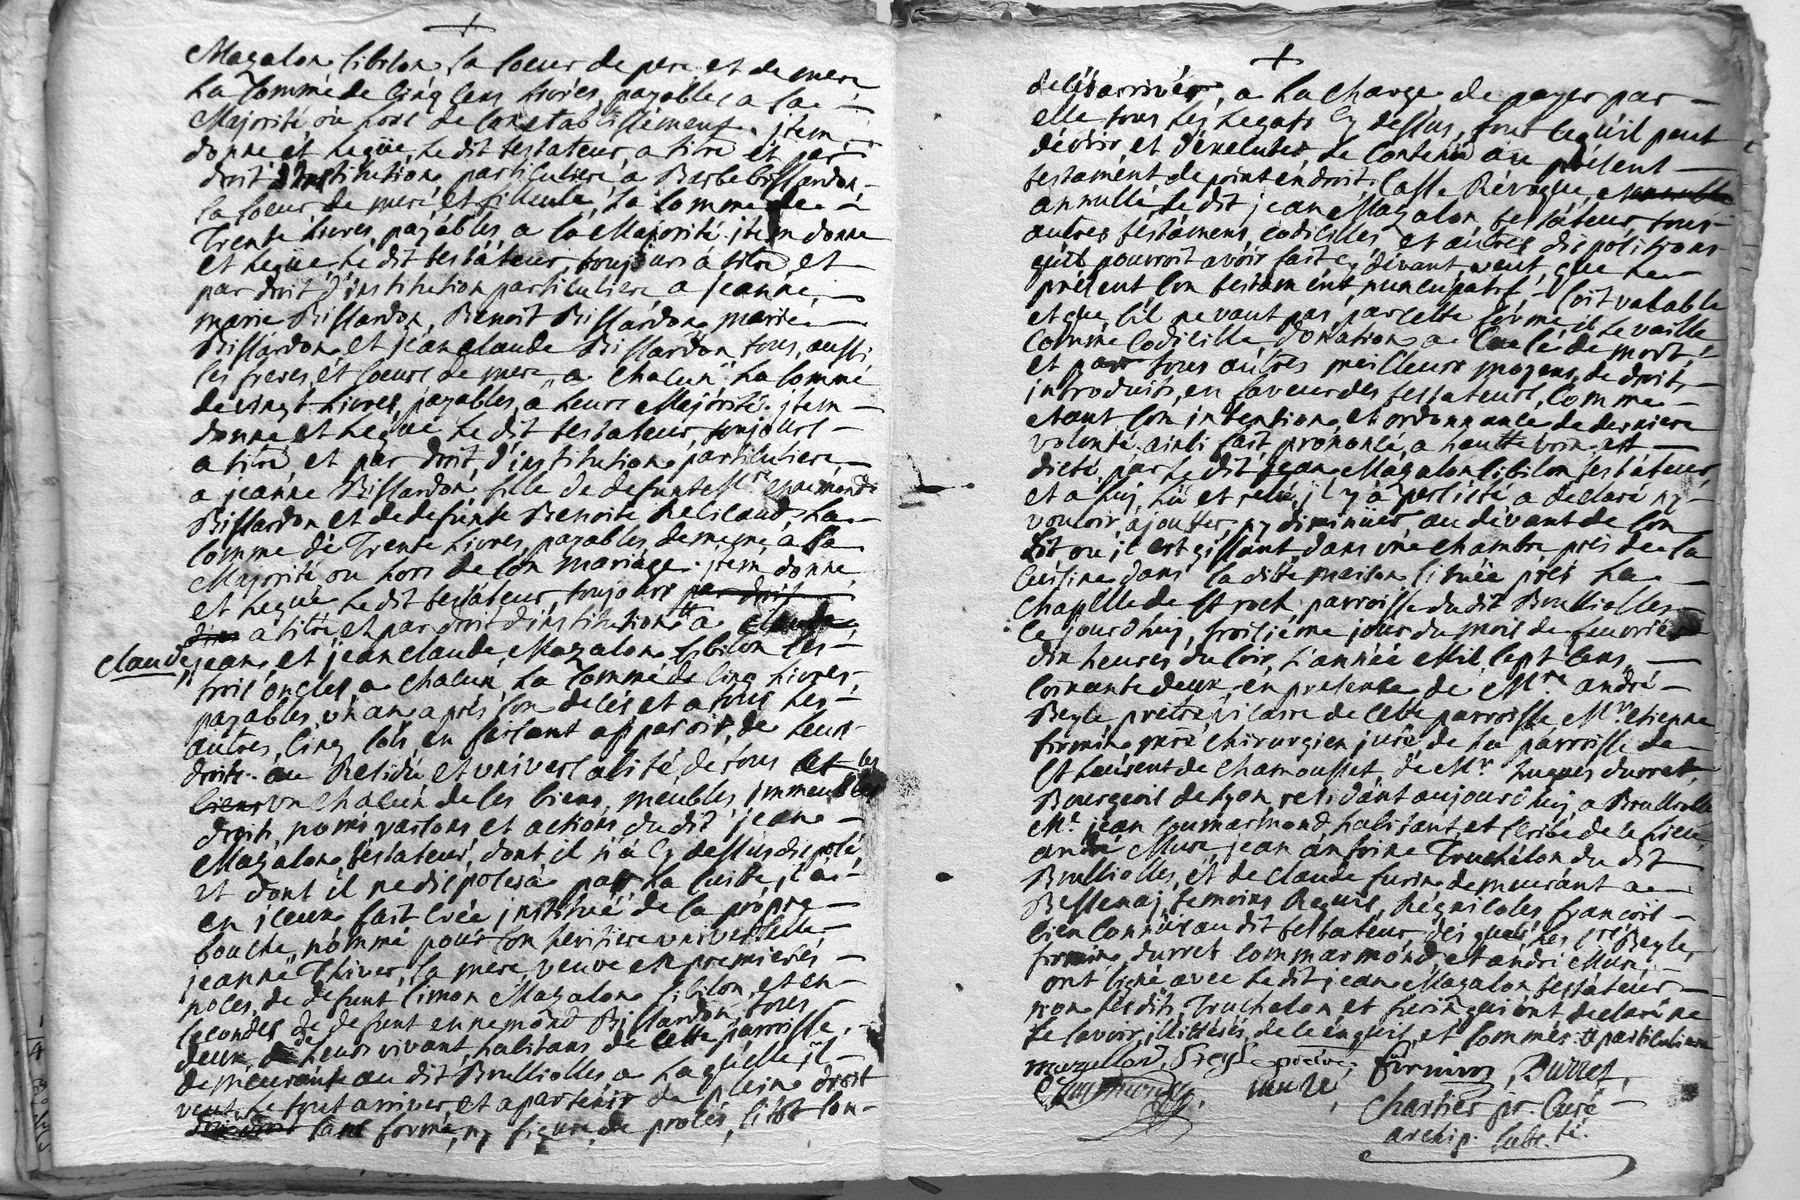 Magalon Sibilon, sa soeur de pere et de mere
la somme de cinq cens livres, payables a sa
Majorité, ou hors de son etablissement. jtem,
donne et legüe, le dit testateur, a titre et par
droit d'institution particuliere, a Barbe Bissardon
sa soeur de mere et filleule, la somme de
Trente livres, payables a sa Majorité. jtem donne
et legüe, le dit testateur, toujours a titre, et
par droit d'institution particuliere a jeanne,
marie Bissardon, Benoit Bissardon, marie
Bissardon, et jean claude Bissardon, tous, aussi
ses freres, et soeurs de mere, a chacun la somme
de vingt livres, payables, a leurs Majorité. jtem
donne et legüe le dit testateur, toujours
a titre et par droit d'institution, particuliere,
a jeanne Bissardon, fille de defunt Mre enemond
Bissardon et de defunte Benoite Relicaud, la
somme de Trente livres, payables, de meme, a sa
Majorité ou hors de son mariage. jtem donne
et legüe, le dit testateur, toujours par droit
a titre, et par droit d'institution a
claude, jean, et jean claude, Magalon Sibilon ses
trois oncles, a chacun, la somme de cinq livres,
payables, un an, apres son decès, et a tous les
autres, cinq sols, en faisant apparoir, de leurs
droits. au Residu et universalité de tous et
biens un chacun de ses biens, meubles, immeubles
droits, noms, raisons et actions du dit jean
Magalon, testateur, dont il n'a cy dessus disposé,
et dont il ne disposera par la suite, il a
en iceux fait créé institué de sa propre
bouche, nommé pour son heritiere universelle
jeanne Thiver, sa mere, veuve en premieres
noces, de defunt simon Magalon, sibilon, et en
secondes de defunt ennemond Bissardon, tous
deux de leurs vivant, habitans de cette parroisse,
demeurante au dit Brulliolles a laquelle il
veut le tout arriver, et apartenir de plein droit
sans forme, ny figure, de procès, sitôt son
+
decès arrivér, a la charge de payer par
elle tous les legats cy dessus, sont ce qu'il peut
devoir, et d'executer, le contenu au présent
testament de point en droit. Casse Révoque, et annulle
annullé, le dit jean Magalon, testateur, tous
autres testamens, codicilles, et autres dispositions
qu'il pourroit avoir fait cy devant, veut, que le
présent son testament, nuncupatif, soit valable
et que s'il ne vaut pas, par cette forme, il le vaille
comme Codicille donation a cause de mort,
et par tous autres meilleurs moyens, de droit
introduits, en faveur des testateurs, Comme
etant, son intention, et ordonnance de derniere
volonté. ainsi fait prononcé, a hautte voix, et
dicté, par le dit jean, Magalon, sibilon, testateur,
et a luy, lû et relû, il y a persisté a declaré n'y
vouloir ajoutter, ny diminüer au devant de son
Lit ou il est gissant dans une chambre, prés de la
cuisine, dans la ditte maison, située, près la
chapelle de St roch parroisse du dit Brulliolles
ce jourd'huy, troisiéme jour du mois de feuvrier
dix heures du soir, l'année Mil sept cens
soixante deux, en presence de Mre andré
Beyle, pretre, vicaire de cette parroisse, Mr etienne
firmin, mre chirurgien juré, de la parroisse de
St Laurent de Chamousset, de Mr hugues durret,
Bourgeois de Lyon, residant aujourd'huy, a Brulliolles
Mr jean coumarmond, habitant, et scribe de ce lieu,
andré Mure, jean antoine Truchelon du dit
Brulliolles, et de claude furin, demeurant a
Bessenaj, temoins Requis, Régnicoles, françois
bien connus au dit testateur dès quels, les srs Beyle,
firmin, durret, commarmond, et andré Mure,
ont signé avec le dit jean Magalon testateur
non les dits, Truchelon et furin, qui ont declaré ne
le savoir, illitérés, de ce enquis, et sommés, particulierement
magallon, Breyle prêtre, firmin, Durret,
mure,
Chartier pr. Curé
archip. subs.té.